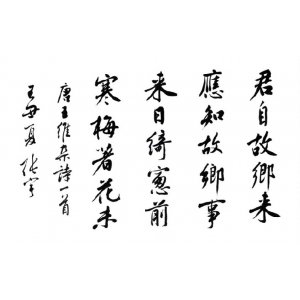 君自故鄉来
應知故鄉事
来日綺窻前
寒梅著花未
唐王維杂詩一首